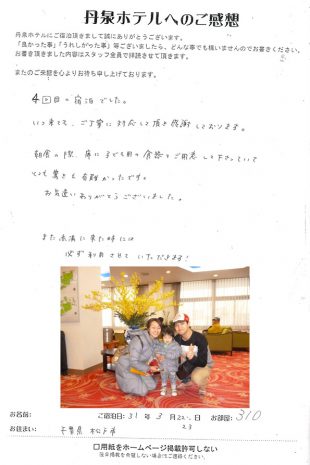 丹泉ホテルへのご感想
丹泉ホテルにご宿泊頂きまして誠にありがとうございます。
「良かった事」「うれしかった事」等ございましたら、どんな事でも構いませんのでお書きください。
お書き頂きました内容はスタッフ全員で拝読させて頂きます。
またのご来館を心よりお待ち申し上げております。
4回目の宿泊でした。
いつ来ても、ご丁寧に対応して頂き感謝しております。
朝食の際、席に子ども用の食器をご用意して下さっていて
とても驚きと有難かったです。
お気遣いありがとうございました。
また
に来た時には
必ず利用させていただきます!
お名前:
ご宿泊日: 31年 3月22 日
お部屋: 310
23
お住まい: 千葉県 松戸市
□用紙をホームページ掲載許可しない